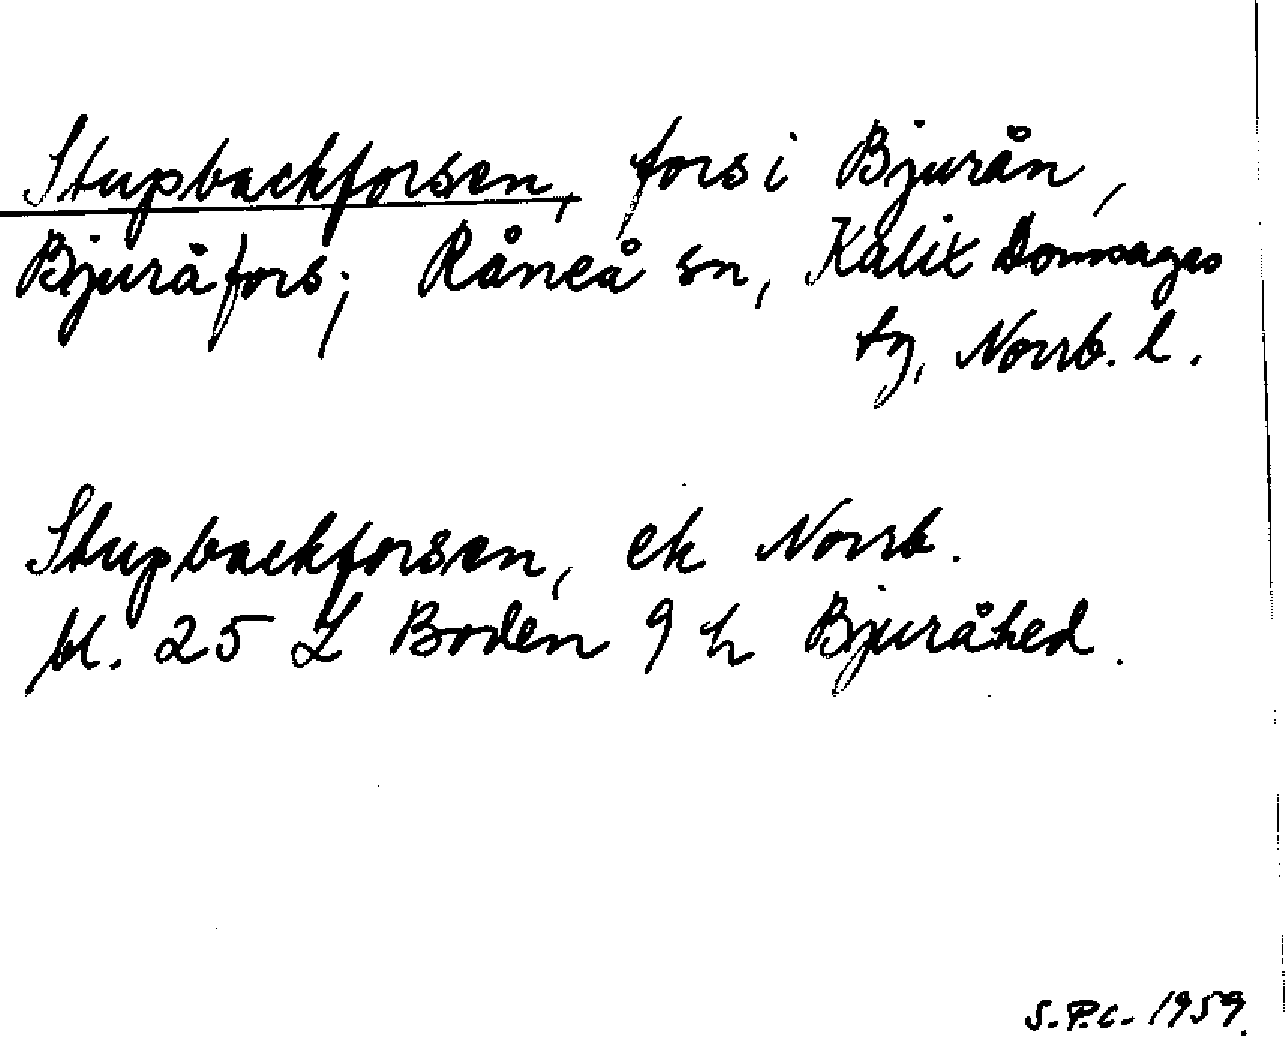 Stupbackforsen, fors i Bjurån,
Bjuråfors; Råneå sn, Kalix Domsagas
tg, Norrb. l.
Stupbackforsen, ek Norrb.
bl. 25 L Boden 9 h Bjuråhed.
S.P.C. 1959.